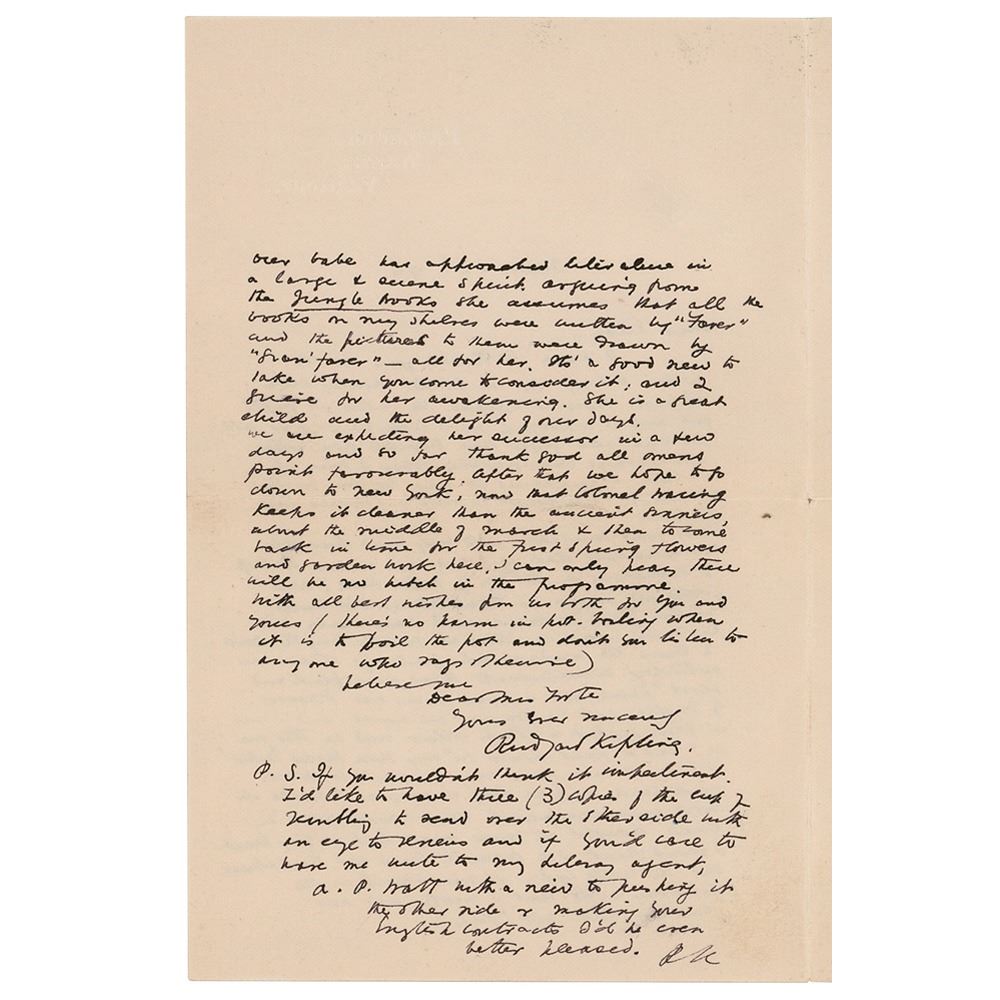 our babe has approached literature in
a large & serene spirit. arguing from
the Jungle Books she assumes that all the
books on my shelves were written by "Farver"
and the pictures to them were drawn by
"Gran'farver" — all for her. It's a good view to
take when you come to consider it; and I
grieve for her awakening. She is a great
child and the delight of our days.
we are expecting her successor in a few
days and so far thank God all omens
point favourably. After that we hope to go
down to New York, now that Colonel Waring
keeps it cleaner than the ancient
about the middle of March & then to come
back in time for the first spring flowers
and garden work here. I can only pray there
will be no hitch in the programme.
With all best wishes from us both for you and
yours (There's no harm in pot-boiling when
it is to boil the pot and don't you listen to
any one who says otherwise)
believe me
Dear Mrs Foote
Yours ever sincerely
Rudyard Kipling.
P. S. If you wouldn't think it impertinent
I'd like to have three (3) copies of the cup of
trembling to send over the other side with
an eye to reviews and if you'd care to
have me write to my literary agent,
A. P. Watt with a view to pushing it
the other side or making your
English contracts I'd be even
better pleased. RK